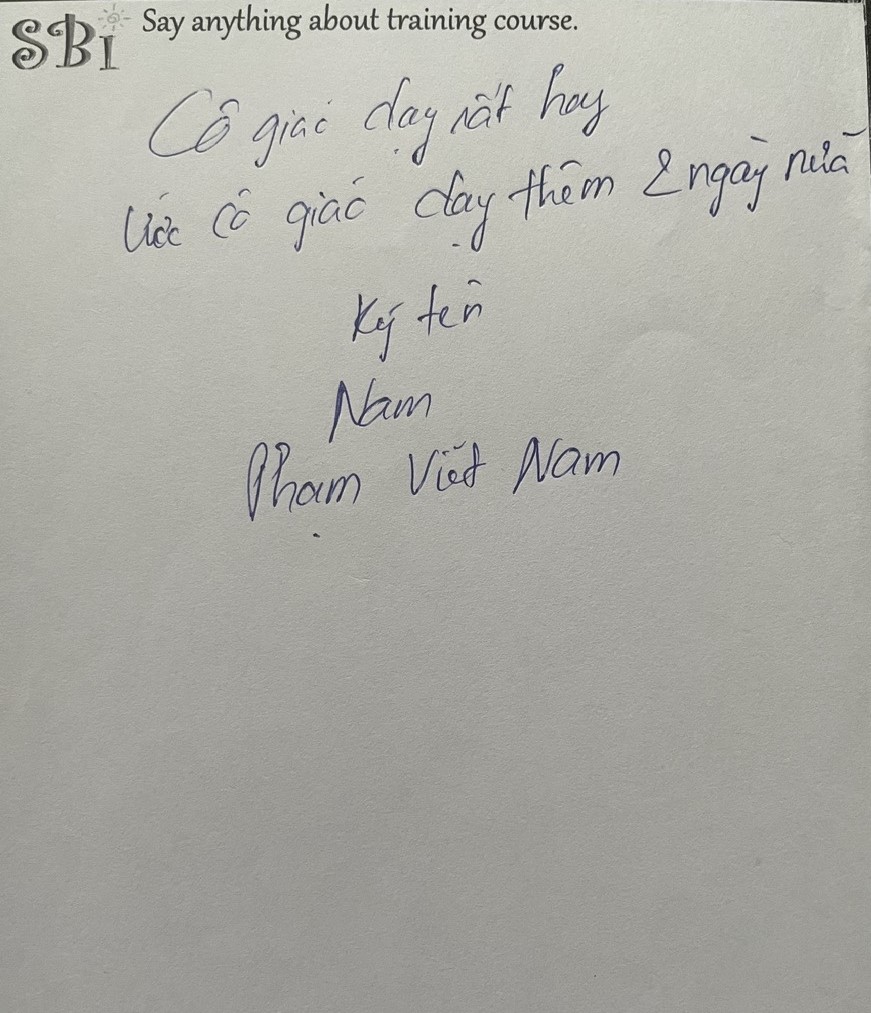 SBI Say anything about training course.
Cô giáo dạy rất hay
Ước cô giáo dạy thêm 2 ngày nữa
Ký tên
Nam
Phạm Viết Nam